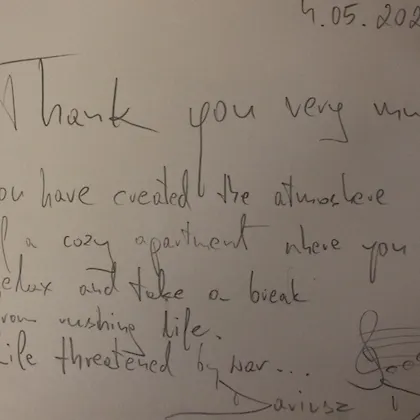 4.05.202
Thank you very mu
ou have created the atmoshere
f a cozy apartment where you
elax and take a break
rom rushing life.
Life threatened by war...
Goo
Dariusz